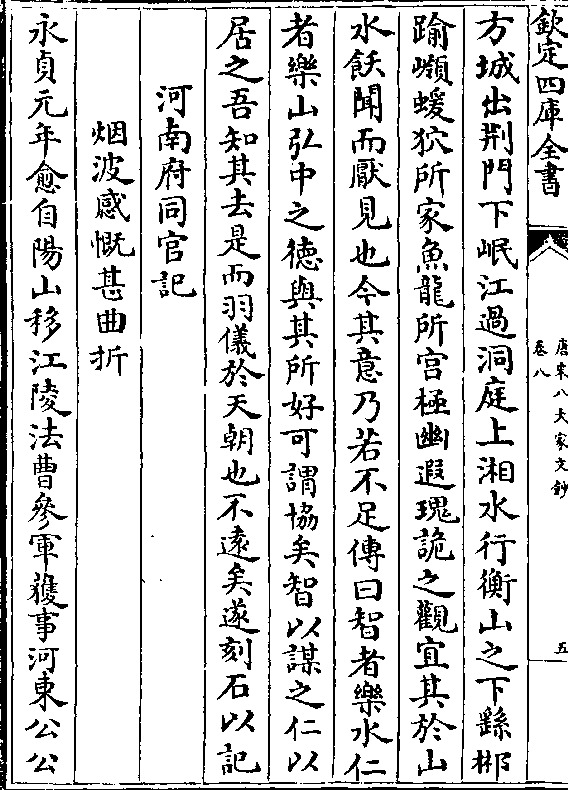 欽定四庫全書
唐宋八大家文鈔
卷八
五
方城出荆門下岷江過洞庭上湘水行衡山之下繇郴
踰嶺蝯狖所家魚龍所宫極幽遐瑰詭之觀宜其於山
水飫聞而厭見也今其意乃若不足傳曰智者樂水仁
者樂山弘中之徳與其所好可謂協矣智以謀之仁以
居之吾知其去是而羽儀於天朝也不逺矣遂刻石以記
河南府同官記
烟波感慨甚曲折
永貞元年愈自陽山移江陵法曹參軍獲事河東公公